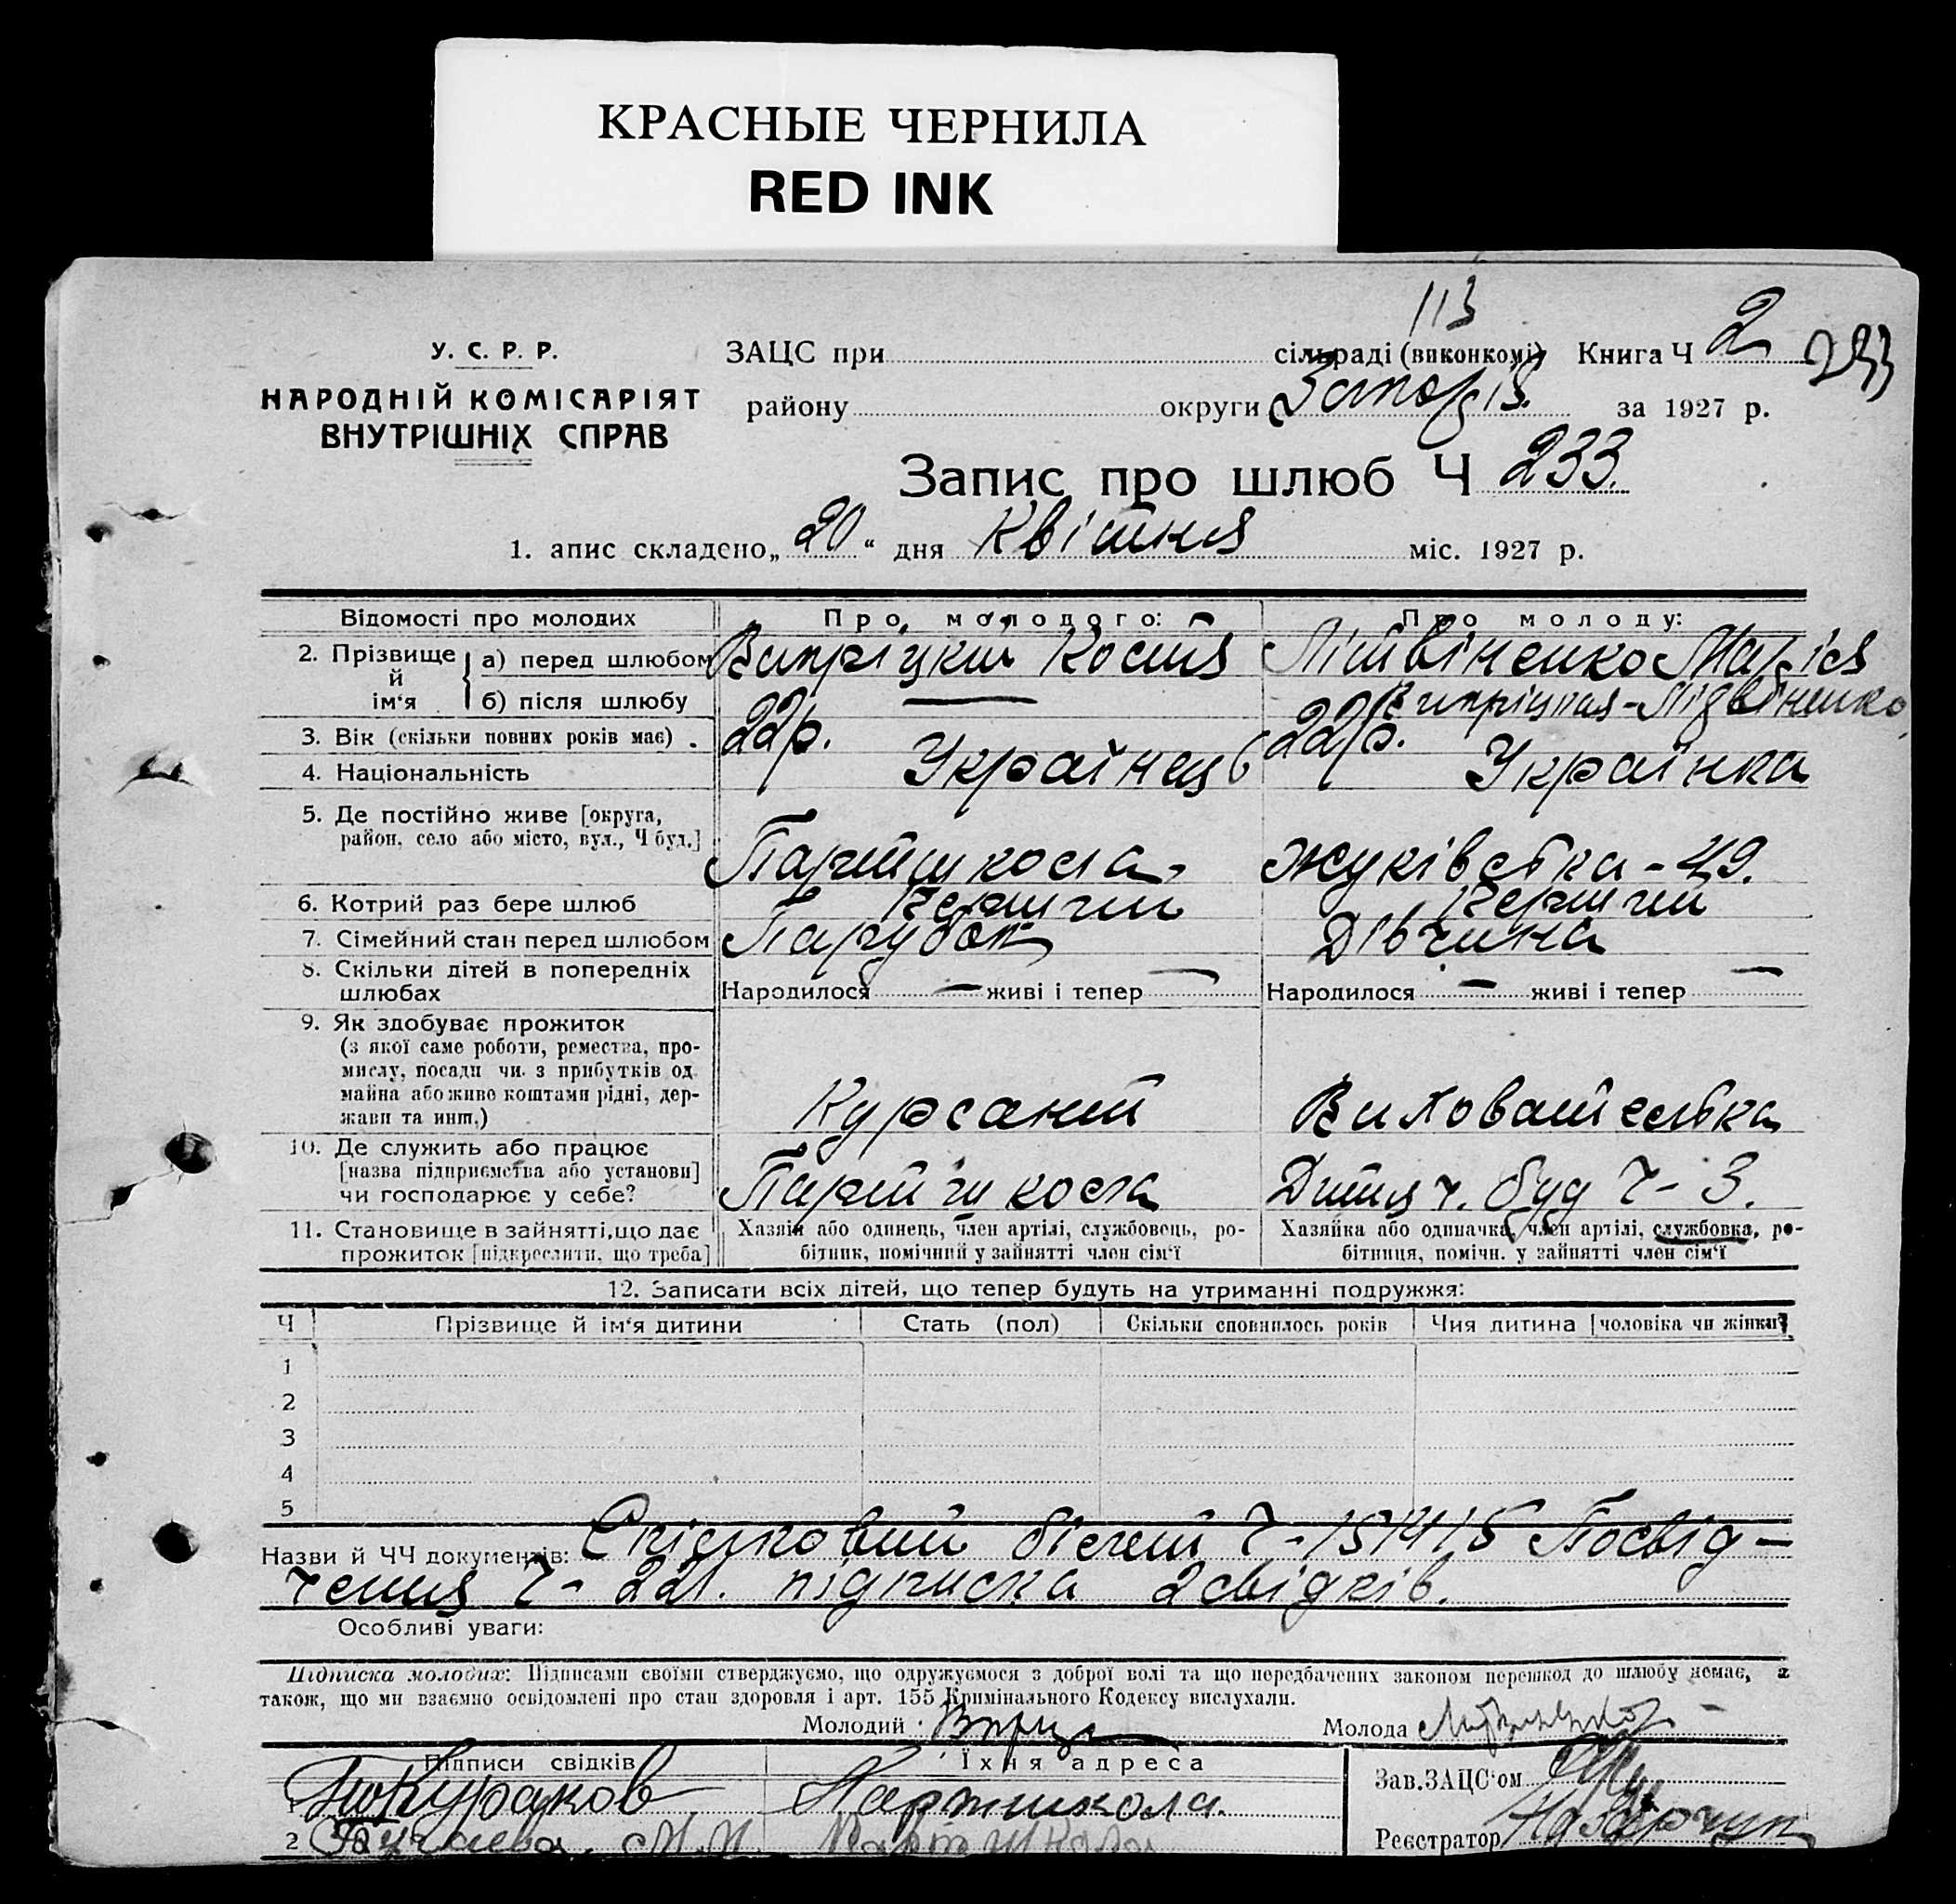 КРАСНЫЕ ЧЕРНИЛА
RED INK
113
У. С. Р. Р.
НАРОДНІЙ КОМІСАРІЯТ
ВНУТРІШНІХ СПРАВ
ЗАЦС при сільраді (виконкомі) Книга Ч 2
233
району округи Запоріз. за 1927 р.
Запис про шлюб Ч 233.
1. апис складено „20“ дня Квітня міс. 1927 р.
Відомості про молодих Про молодого: Про молоду:
2. Прізвище й ім‘я а) перед шлюбом Випріцкий Костя Літвіненко Марія
б) після шлюбу — Випріцкая-Лідвіненко
3. Вік (скільки повних років має) . 22р. 22р.
4. Національність Українець Українка
5. Де постійно живе [округа,
район, село або місто, вул., Ч буд.] Партшкола. Жуківська - 49.
6. Котрий раз бере шлюб Перший Перший
7. Сімейний стан перед шлюбом Парубок Дівчина
8. Скільки дітей в попередніх
шлюбах Народилося — живі і тепер — Народилося — живі і тепер —
9. Як здобуває прожиток
(з якої саме роботи, ремества, про-
мислу, посади чи з прибутків од
майна або живе коштами рідні, дер-
жави та инш.) Курсант Вихователька
10. Де служить або працює
[назва підприємства або установи]
чи господарює у себе? Партшкола Дитяч. буд Ч - 3.
11. Становище в зайнятті, що дає
прожиток [підкреслити, що треба]
Хазяїн або одинець, член артілі, службовець, ро-
бітник, помічний у зайнятті член сім‘ї
Хазяйка або одиначка, член артілі, службовка, ро-
бітниця, помічн. у зайнятті член сім‘ї
12. Записати всіх дітей, що тепер будуть на утриманні подружжя:
Ч Прізвище й ім‘я дитини Стать (пол) Скільки сповнилось років Чия дитина [чоловіка чи жінки]
1
2
3
4
5
Назви й ЧЧ документів: Спілковий білет Ч - 151415 Посвід-
чення Ч - 221. підписка 2 свідків.
Особливі уваги:
Підписка молодих: Підписами своїми стверджуємо, що одружуємося з доброї волі та що передбачених законом перешкод до шлюбу немає, а
також, що ми взаємно освідомлені про стан здоровля і арт. 155 Кримінального Кодексу вислухали.
Молодий Молода
Підписи свідків Їхня адреса
1 Кураков Партшкола.
2 М. И. Партшкола
Зав. ЗАЦС‘ом
Реєстратор